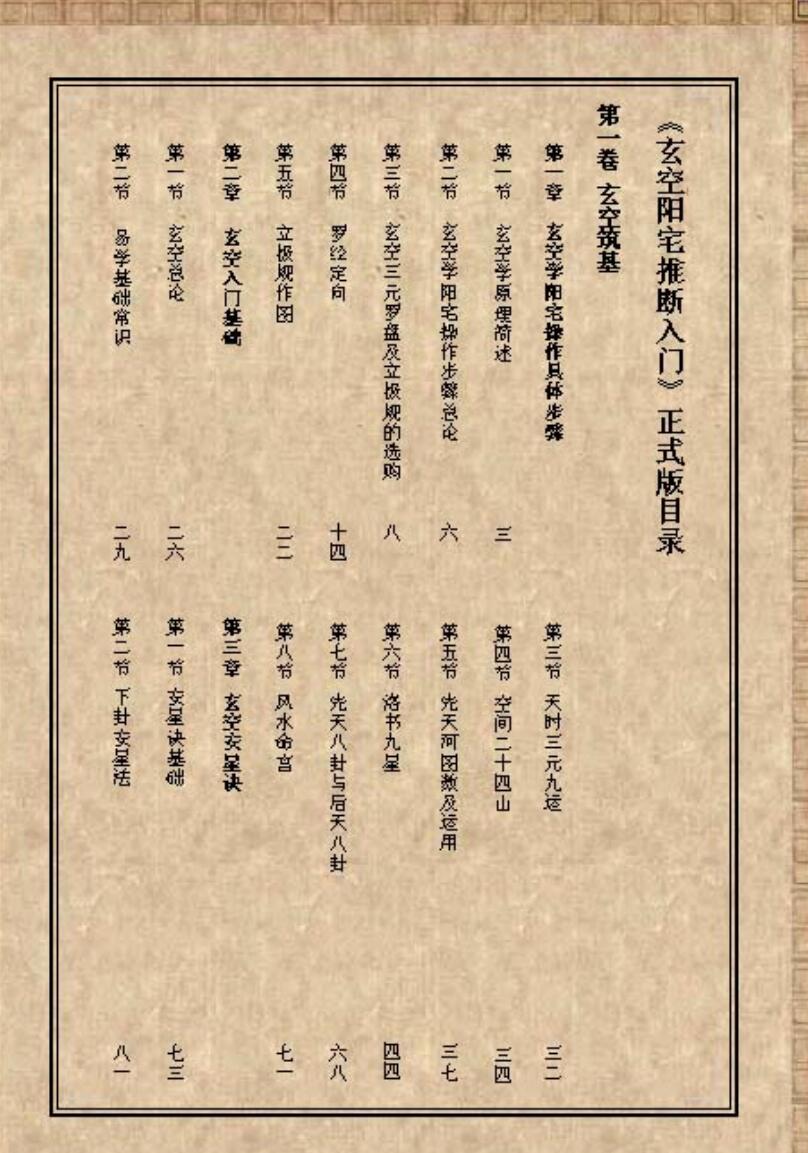 《玄空阳宅推断入门》正式版目录
第一卷 玄空筑基
第一章 玄空学阳宅操作具体步骤
第一节 玄空学原理简述 三
第二节 玄空学阳宅操作步骤总论 六
第三节 玄空三元罗盘及立极规的选购 八
第四节 罗经定向 十四
第五节 立极规作图 二二
第二章 玄空入门基础
第一节 玄空总论 二六
第二节 易学基础常识 二九
第三节 天时三元九运 三二
第四节 空间二十四山 三四
第五节 先天河图数及运用 三七
第六节 洛书九星 四四
第七节 先天八卦与后天八卦 六八
第八节 风水命宫 七一
第三章 玄空安星诀
第一节 安星诀基础 七三
第二节 下卦安星法 八一